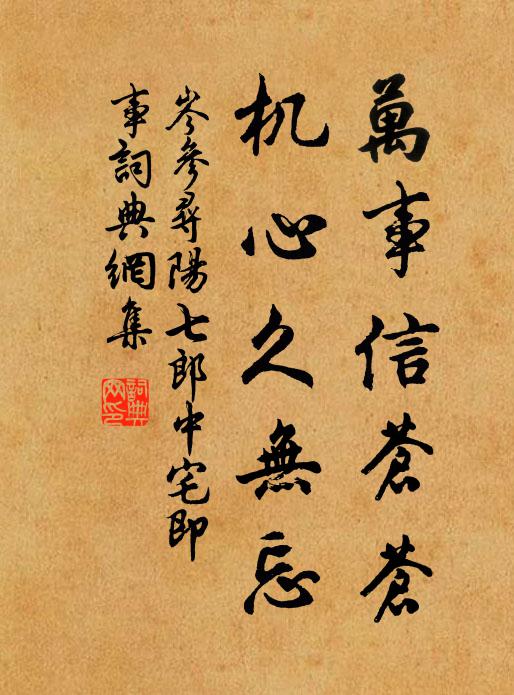 萬事信蒼蒼
机心久無忘
岑參尋陽七郎中宅即
事詞典網集
詞典网印